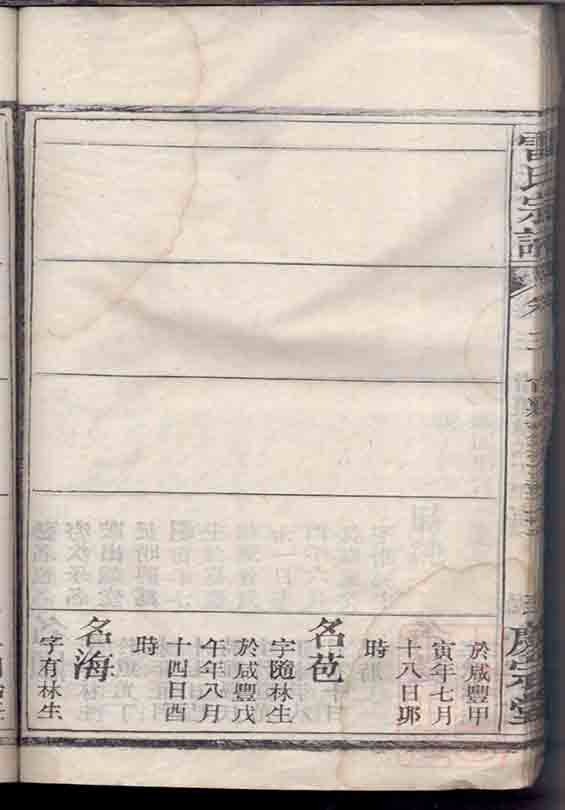 雷氏宗譜
卷三
慶宗堂
於咸豐甲
寅年七月
十八日耶
時
名苞
字隨林生
於咸豐戊
午年八月
十四日酉
時
名海
字有林生